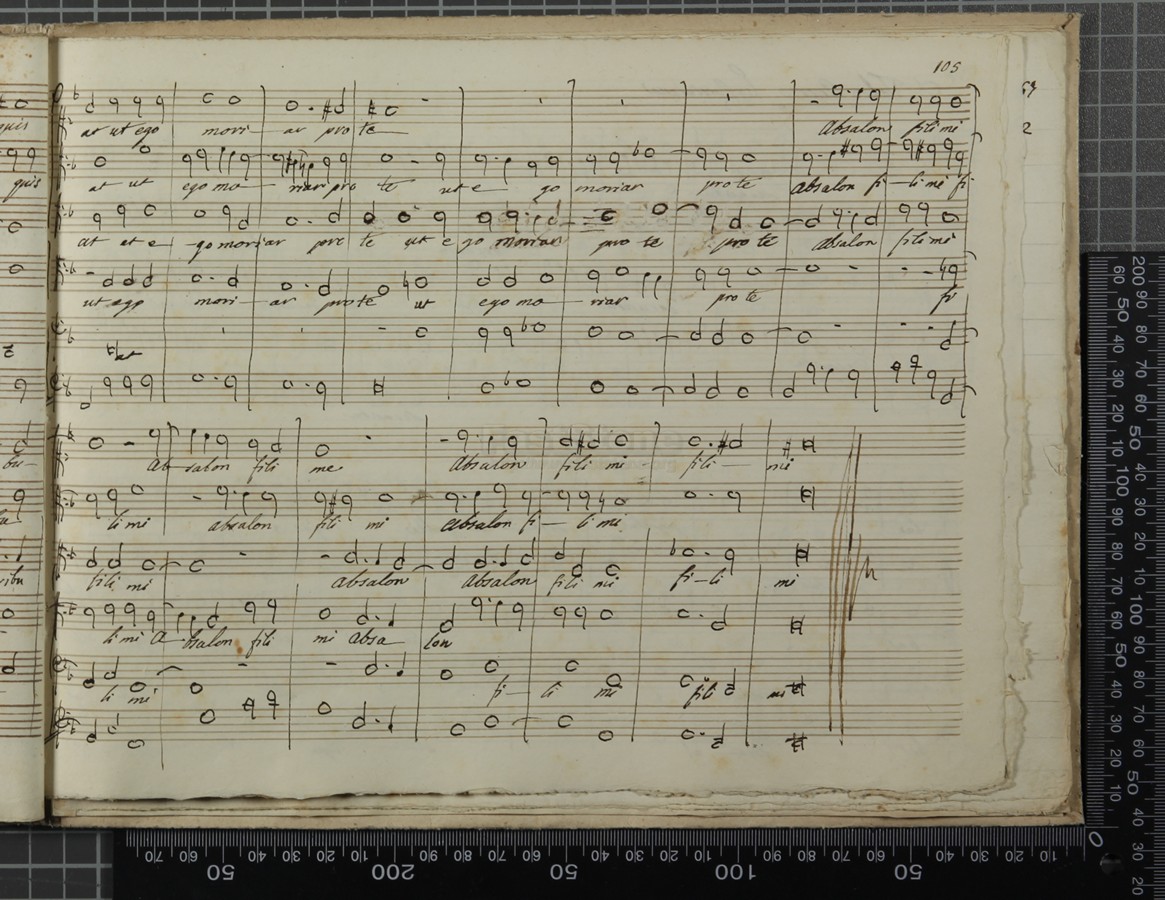 105
quis
at ut ego mori ar pro te Absalon fili mi
2
quis at ut ego mo riar pro te ut e go moriar pro te absalon fi li mi fi
at et e go moriar pro te ut e go moriar pro te pro te absalon fili mi
ut ego mori ar pro te ut ego mo riar pro te fi
at
Absalon fili me Absalon fili mi fili mi
li mi absalon fili mi absalon fi li mi
fili mi absalon Absalon fili mi fi li mi
li mi A bsalon fili mi absa lon
li mi fi li mi fili mi